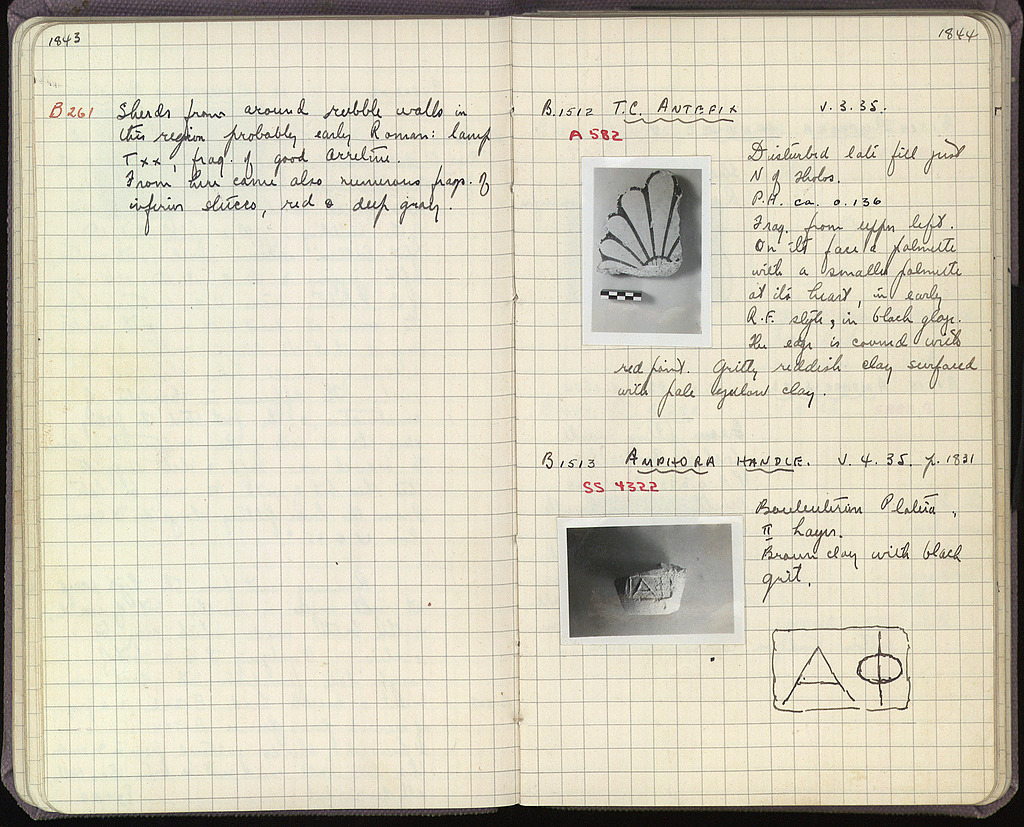 1843
B 261 Sherds from around rubble walls in
this region probably early Roman: lamp
T xx, frag. of good Arretine.
From here came also numerous frags. of
inferior stucco, red & deep gray.
1844
B.1512 T.C. ANTEFIX V.3.35.
A 582
Disturbed late fill just
N of Tholos.
P.H. ca. 0.136
Frag. from upper left.
On its face a palmette
with a smaller palmette
at its heart, in early
R.F. style, in black glaze.
The edge is covered with
red paint. Gritty reddish clay surfaced
with pale yellow clay.
B 1513 AMPHORA HANDLE. V.4.35 p. 1831
SS 4322
Bouleuterion Plateia,
II Layer.
Brown clay with black
grit.
ΑΦ